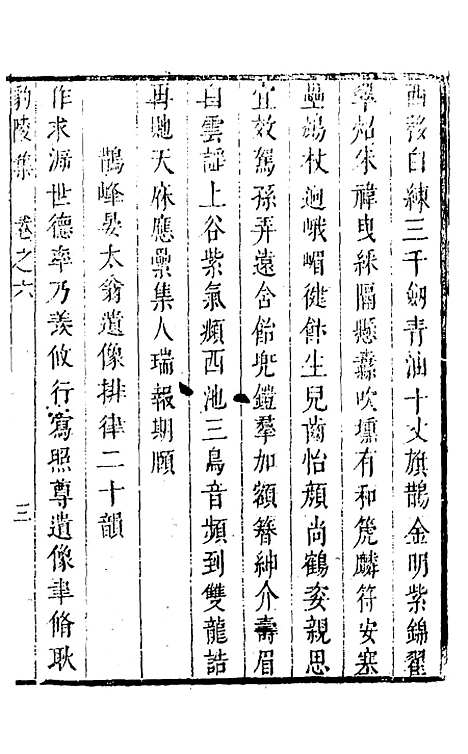 西筱白練三千劒青油十丈旗鵲金明紫錦翟
翠炤朱褘曳綵隔懸纛吹壎有和箎麟符安塞
壘鳩杖迥峨嵋健飰生兒齒怡顏尚鶴姿親思
宜效駕孫弄遠含飴兜鎧羣加額簪紳介壽眉
白雲謡上谷紫氣頻西池三鳥音頻到雙龍誥
再馳天庥應疊集人瑞報期頤
鵲峰晏太翁遺像排律二十韻
作求源世德率乃羨攸行寫照尊遺像聿脩耿
豹陵集 卷之六 三